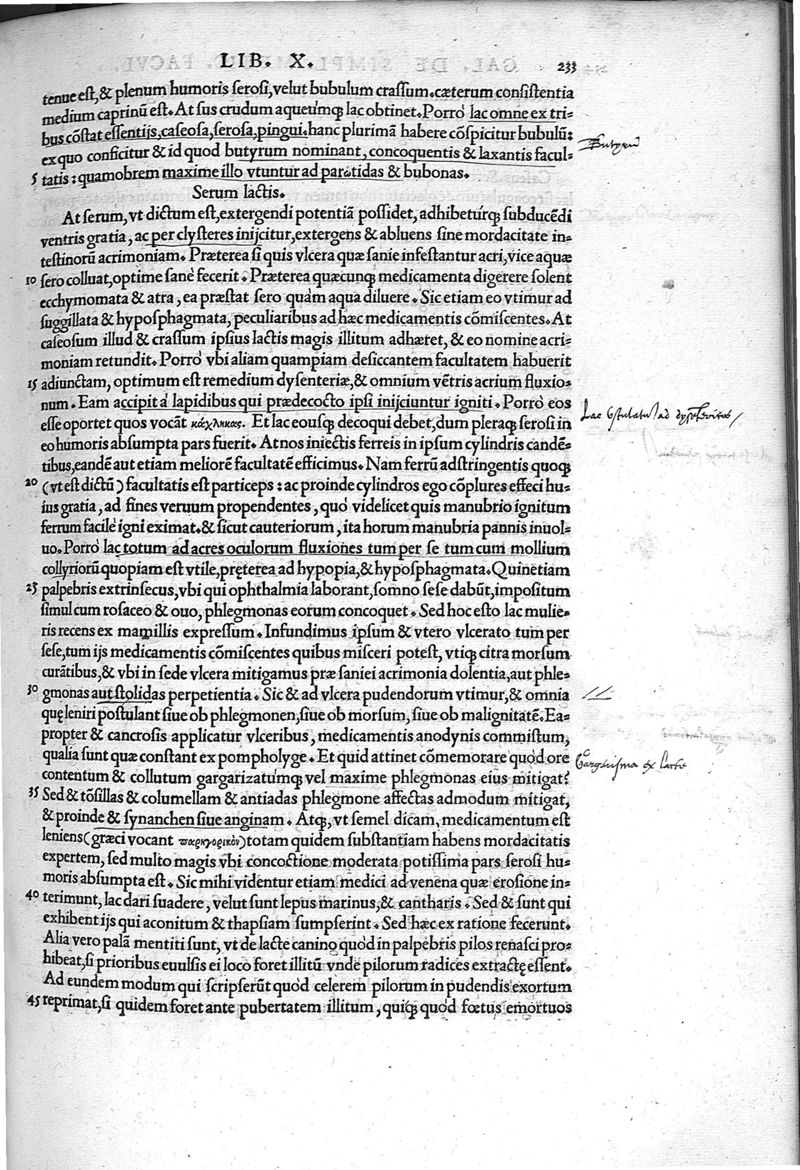 LIB. X. 233
tenue est, & plenum humoris serosi, velut bubulum crassum. cæterum consistentia
medium caprinũ est. At sus crudum aqueumq́; lac obtinet. Porro lac omne ex tri-
bus cõstat essentijs, caseosa, serosa, pingui. hanc plurimã habere cõspicitur bubulũ:
ex quo conficitur & id quod butyrum nominant, concoquentis & laxantis facul-
Butyrũ
5 tatis: quamobrem maxime illo vtuntur ad parotidas & bubonas.
Serum lactis.
At serum, vt dictum est, extergendi potentiã possidet, adhibeturq́; subducẽdi
ventris gratia, ac per clysteres inijcitur, extergens & abluens sine mordacitate in-
testinorũ acrimoniam. Præterea si quis vlcera quæ sanie infestantur acri, vice aquæ
10 sero colluat, optime sanè fecerit. Præterea quæcunq; medicamenta digerere solent
ecchymomata & atra, ea præstat sero quàm aqua diluere. Sic etiam eo vtimur ad
suggillata & hyposphagmata, peculiaribus ad hæc medicamentis cõmiscentes. At
caseosum illud & crassum ipsius lactis magis illitum adhæret, & eo nomine acri-
moniam retundit. Porrò vbi aliam quampiam desiccantem facultatem habuerit
15 adiunctam, optimum est remedium dysenteriæ, & omnium vẽtris acrium fluxio-
num. Eam accipit à lapidibus qui prædecocto ipsi inijciuntur igniti. Porrò eos
Lac ad
esse oportet quos vocãt κάχληκας. Et lac eousq; decoqui debet, dum pleraq; serosi in
eo humoris absumpta pars fuerit. At nos iniectis ferreis in ipsum cylindris candẽ-
tibus, eandẽ aut etiam meliorẽ facultatẽ efficimus. Nam ferrũ adstringentis quoq;
20 (vt est dictũ) facultatis est particeps: ac proinde cylindros ego cõplures effeci hu-
ius gratia, ad fines veruum propendentes, quò videlicet quis manubrio ignitum
ferrum facilè igni eximat. & sicut cauteriorum, ita horum manubria pannis inuol-
uo. Porrò lac totum ad acres oculorum fluxiones tum per se tum cum mollium
collyriorũ quopiam est vtile, pręterea ad hypopia, & hyposphagmata. Quinetiam
25 palpebris extrinsecus, vbi qui ophthalmia laborant, somno sese dabũt, impositum
simul cum rosaceo & ouo, phlegmonas eorum concoquet. Sed hoc esto lac mulie-
ris recens ex mamillis expressum. Infundimus ipsum & vtero vlcerato tum per
sese, tum ijs medicamentis cõmiscentes quibus misceri potest, vtiq; citra morsum
curãtibus, & vbi in sede vlcera mitigamus præ saniei acrimonia dolentia, aut phle-
30 gmonas aut stolidas perpetientia. Sic & ad vlcera pudendorum vtimur, & omnia
quę leniri postulant siue ob phlegmonen, siue ob morsum, siue ob malignitatẽ. Ea-
propter & cancrosis applicatur vlceribus, medicamentis anodynis commistum,
qualia sunt quæ constant ex pompholyge. Et quid attinet cõmemorare quod ore
Gargarisma ex lacte
contentum & collutum gargarizatumq; vel maxime phlegmonas eius mitigat?
35 Sed & tõsillas & columellam & antiadas phlegmone affectas admodum mitigat,
& proinde & synanchen siue anginam. Atq;, vt semel dicam, medicamentum est
leniens (græci vocant παρηγορικὸν) totam quidem substantiam habens mordacitatis
expertem, sed multo magis vbi concoctione moderata potissima pars serosi hu-
moris absumpta est. Sic mihi videntur etiam medici ad venena quæ erosione in-
40 terimunt, lac dari suadere, velut sunt lepus marinus, & cantharis. Sed & sunt qui
exhibent ijs qui aconitum & thapsiam sumpserint. Sed hæc ex ratione fecerunt.
Alia vero palã mentiti sunt, vt de lacte canino quòd in palpebris pilos renasci pro-
hibeat, si prioribus euulsis ei loco foret illitũ vnde pilorum radices extractę essent.
Ad eundem modum qui scripserũt quòd celerem pilorum in pudendis exortum
45 reprimat, si quidem foret ante pubertatem illitum, quiq́; quòd fœtus emortuos